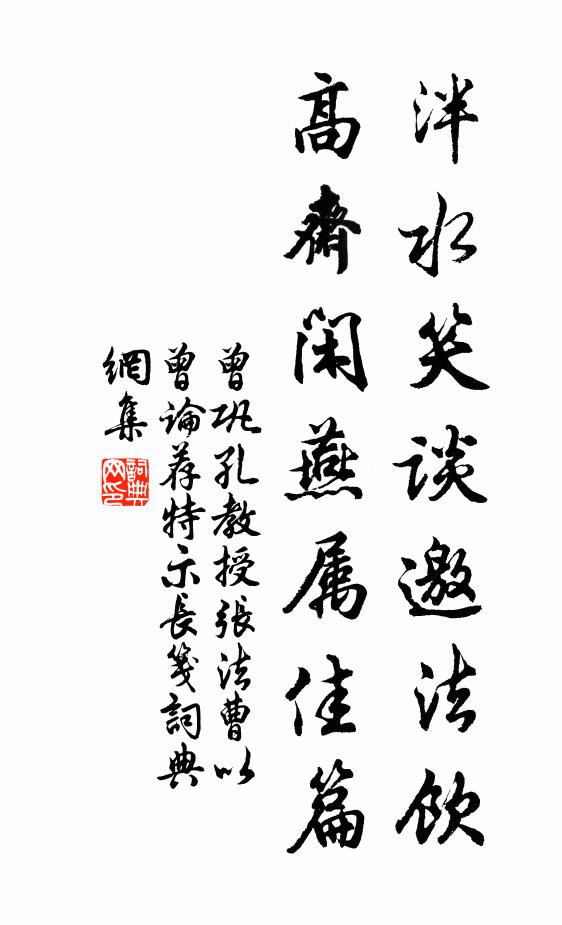 泮水笑谈邀法饮
高斋闲燕属佳篇
曾巩孔教授張法曹以
曾论荐特示長笺詞典
網集
詞典網印